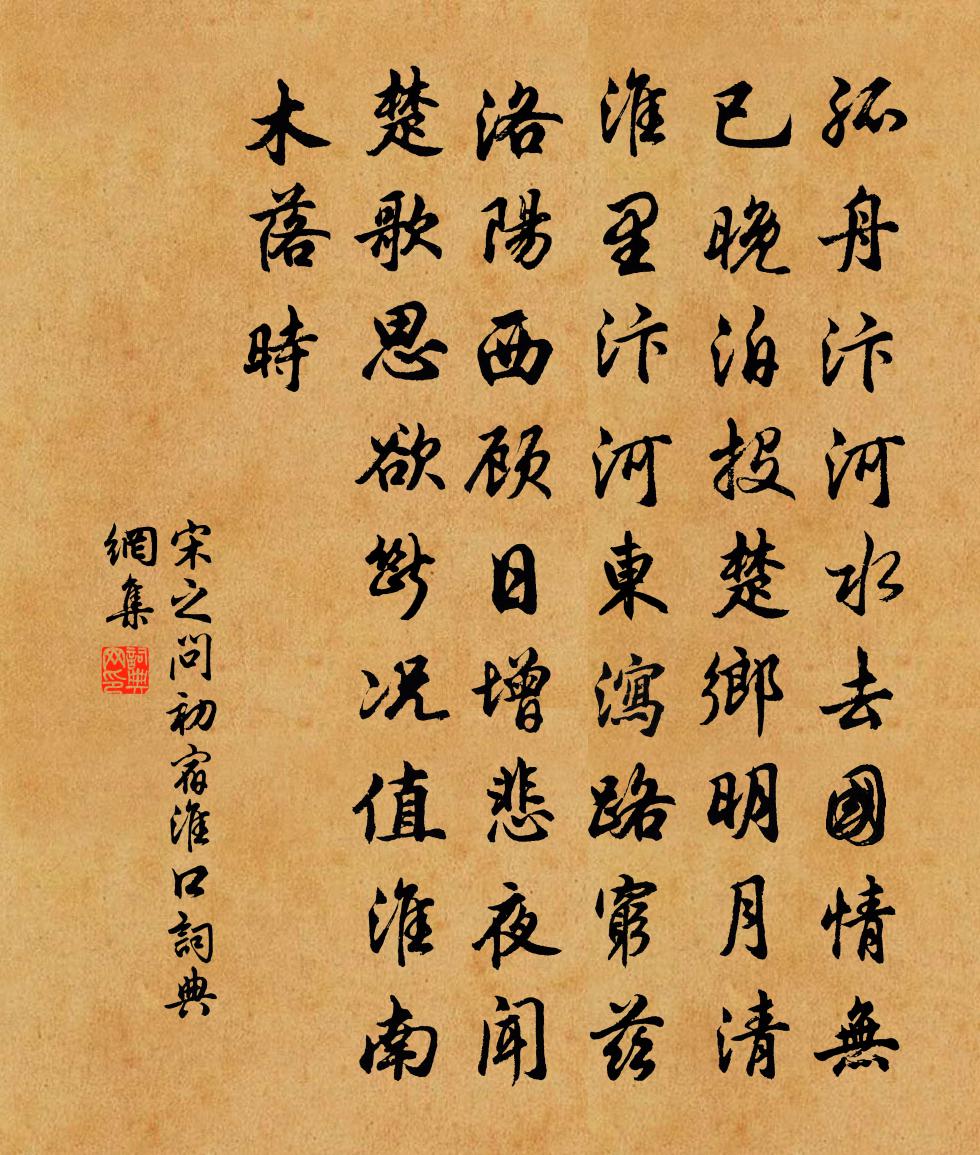 孤舟汴河水去國情無
已晚泊投楚鄉明月清
淮里汴河東瀉路窮茲
洛陽西顧日增悲夜聞
楚歌思欲斷況值淮南
木落時
宋之問初宿淮口詞典
網集
詞典網印